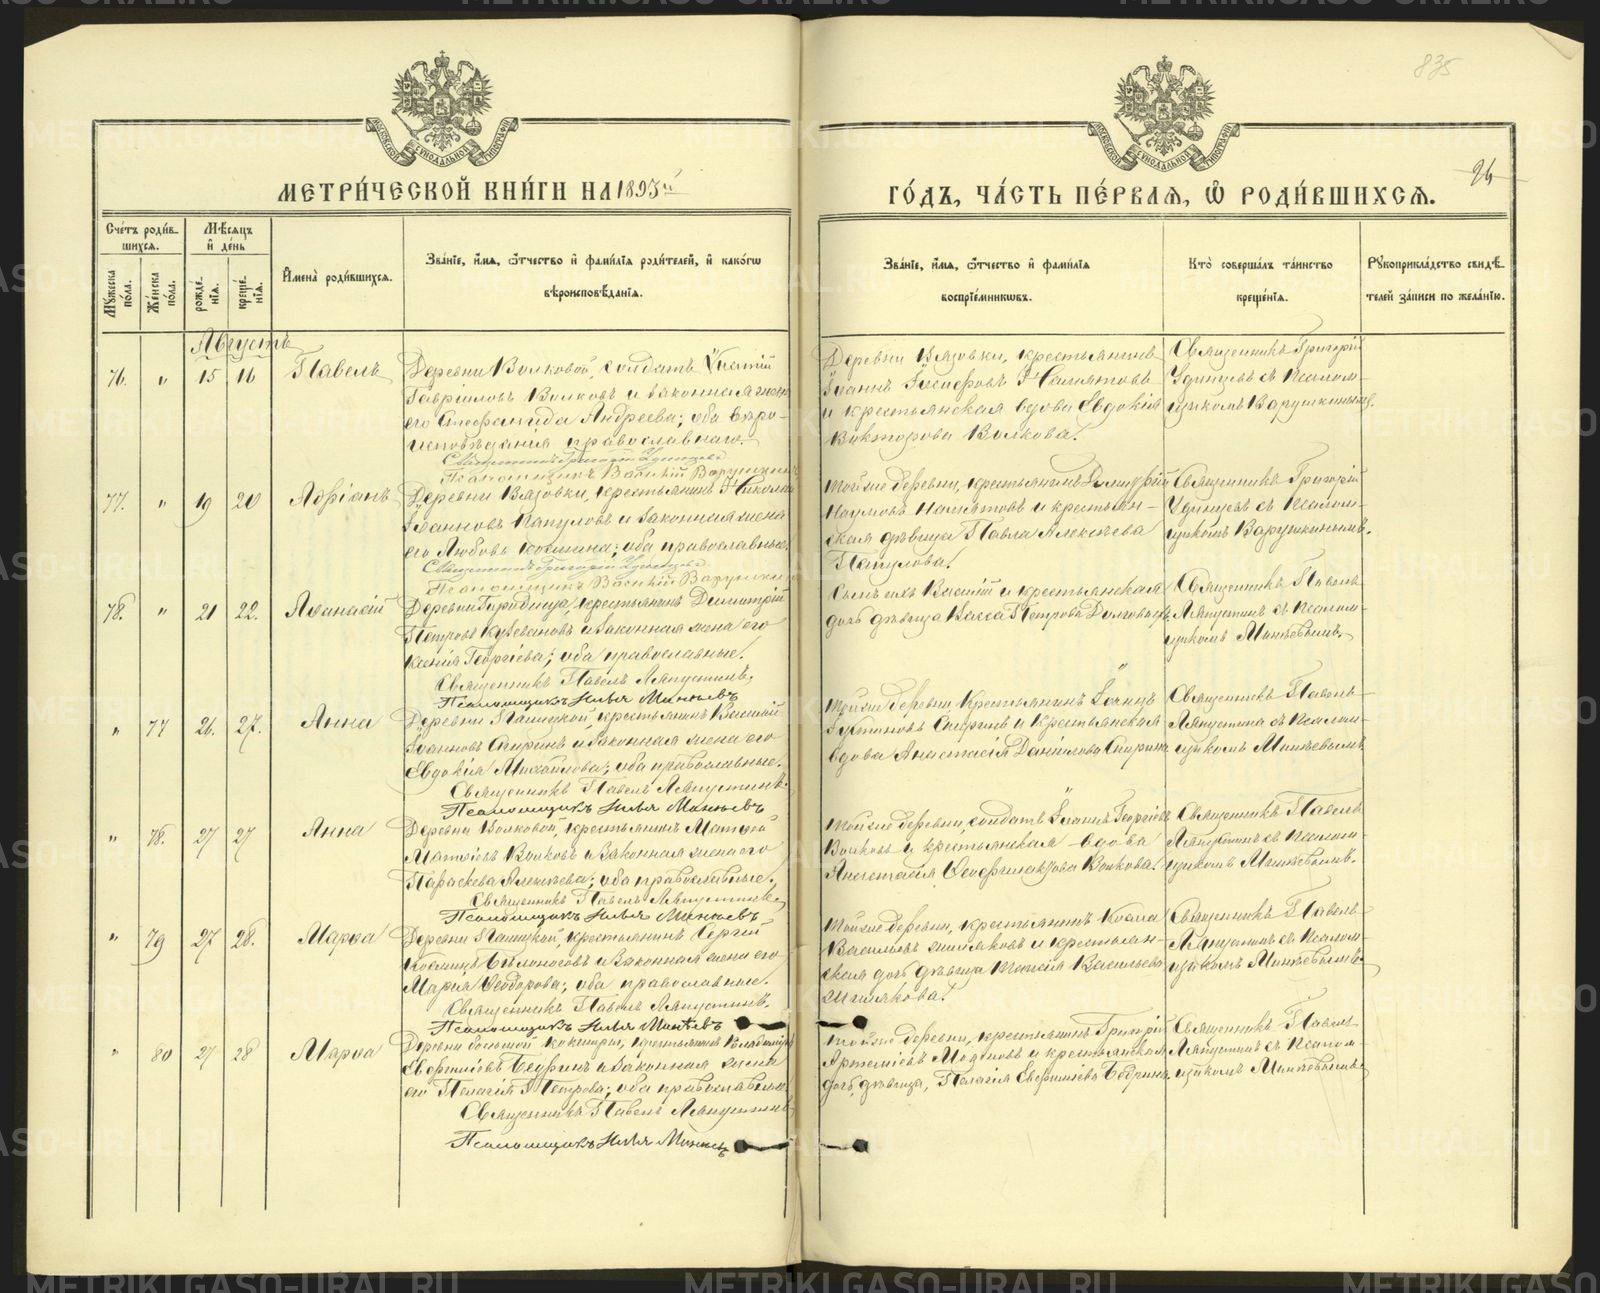 835
26
МЕТРИ́ЧЕСКОЙ КНИ́ГИ НА 1893й
ГО́ДЪ, ЧА́СТЬ ПЕ́РВАЯ, Ѽ РОДИ́ВШИХСЯ.
Сче́тъ роди́в-
шихся.
Му́жеска по́ла.
Же́нска по́ла.
Мѣ́сяцъ
и҆ де́нь
рожде́-
нїѧ.
креще́-
нїѧ.
И҆мена̀ роди́вшихся.
Зва́нїе, и҆́мѧ, ѻ҆́тчество и҆ фами́лїѧ роди́телей, и҆ како́гѡ
вѣроисповѣ́данїѧ.
Зва́нїе, и҆́мѧ, ѻ҆́тчество и҆ фами́лїѧ
воспрїе́мникѡвъ.
Кто̀ соверша́лъ та́инство
креще́нїѧ.
Рꙋкоприкла́дство свидѣ́-
телей за́писи по жела́нїю.
Августъ
76. " 15 16 Павелъ
Деревни Волковой, солдатъ
Гавріиловъ Волковъ и законная жена
его Стефанида Андреева; оба вѣро-
исповѣданія православнаго.
Священникъ Григорій Удинцевъ
Псаломщикъ Василій Варушкинъ
Деревни Вязовки, крестьянинъ
Іоаннъ Іосифовъ
и крестьянская вдова Евдокія
Викторова Волкова.
Священникъ Григорій
Удинцевъ съ псалом-
щикомъ Варушкинымъ.
77. " 19 20 Адріанъ
Деревни Вязовки, крестьянинъ Николай
Іоанновъ Папуловъ и законная жена
его Любовь Космина; оба православные.
Священникъ Григорій Удинцевъ
Псаломщикъ Василій Варушкинъ
Той же деревни, крестьянинъ Димитрій
Наумовъ и крестьян-
ская дѣвица Павла Алексѣева
Папулова.
Священникъ Григорій
Удинцевъ съ псалом-
щикомъ Варушкинымъ.
78. " 21 22. Аѳанасій
Деревни крестьянинъ Димитрій
Петровъ и законная жена его
Ксенія Георгіева; оба православные.
Священникъ Павелъ Ляпустинъ.
Псаломщикъ Илья Минѣевъ
Сынъ ихъ Василій и крестьянская
дочь дѣвица Васса Петрова
Священникъ Павелъ
Ляпустинъ съ псалом-
щикомъ Минѣевымъ.
" 77 26. 27. Анна
Деревни крестьянинъ Василій
Іоанновъ Спиринъ и законная жена его
Евдокія Михайлова; оба православные.
Священникъ Павелъ Ляпустинъ.
Псаломщикъ Илья Минѣевъ
Той же деревни крестьянинъ Іоаннъ
Іустиновъ Спиринъ и крестьянская
вдова Анастасія Даніилова Спирина
Священникъ Павелъ
Ляпустинъ съ псалом-
щикомъ Минѣевымъ
" 78. 27 27 Анна
Деревни Волковой, крестьянинъ Матѳей
Матѳіевъ Волковъ и законная жена его
Параскева Алексѣева; оба православные.
Священникъ Павелъ Ляпустинъ
Псаломщикъ Илья Минѣевъ
Той же деревни, солдатъ Іоаннъ Георгіевъ
Волковъ и крестьянская вдова
Анастасія Волкова.
Священникъ Павелъ
Ляпустинъ съ псалом-
щикомъ Минѣевымъ.
" 79 27 28. Марѳа
Деревни крестьянинъ Сергій
Косминъ Бѣлоносовъ и законная жена его
Марія Ѳеодорова; оба православные.
Священникъ Павелъ Ляпустинъ.
Псаломщикъ Илья Минѣевъ
Той же деревни, крестьянинъ Косма
Васильевъ Шиляковъ и крестьян-
ская дочь дѣвица Васильева
Шилякова.
Священникъ Павелъ
Ляпустинъ съ псалом-
щикомъ Минѣевымъ
" 80 27 28 Марѳа
Деревни Большой крестьянинъ
Евфиміевъ и законная жена
его Пелагія Петрова; оба православные
Священникъ Павелъ Ляпустинъ
Псаломщикъ Илья Минѣевъ
Той же деревни, крестьянинъ Григорій
Артеміевъ и крестьянская
дочь, дѣвица, Пелагія Евфиміева
Священникъ Павелъ
Ляпустинъ съ псалом-
щикомъ Минѣевымъ
METRIKI.GASO-URAL.RU